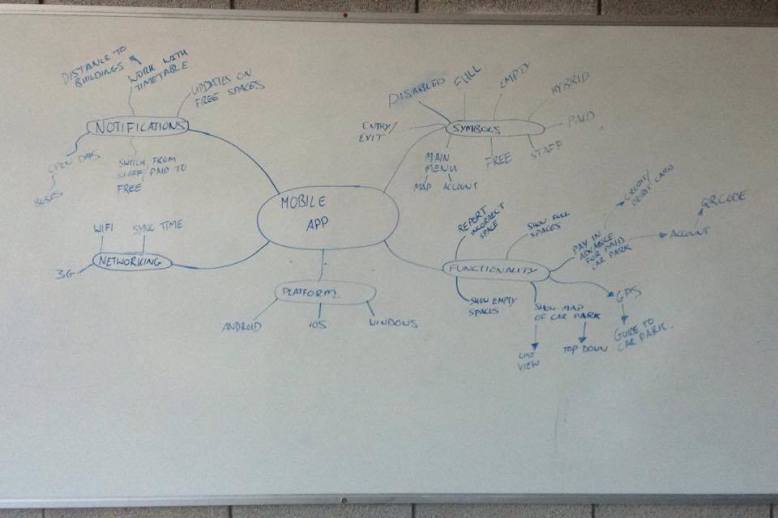 DISTANCE TO
BUILDINGS
WORK WITH
TIMETABLE
UPDATES ON
FREE SPACES
NOTIFICATIONS
OPEN DAYS
BUSES
SWITCH FROM
STAFF PAID TO
FREE
DISABLED
FULL
EMPTY
HYBRID
PAID
STAFF
FREE
ENTRY/
EXIT
SYMBOLS
MAIN
MENU
MAP
ACCOUNT
MOBILE
APP
WIFI
SYNC TIME
NETWORKING
3G
PLATFORM
ANDROID
IOS
WINDOWS
FUNCTIONALITY
REPORT
INCORRECT
SPACE
SHOW FULL
SPACES
PAY IN
ADVANCE
FOR PAID
CAR PARK
CREDIT/
DEBIT CARD
ACCOUNT
QR CODE
GPS
GUIDE TO
CAR PARK
SHOW EMPTY
SPACES
SHOW MAP
OF CAR PARK
VIEW
TOP DOWN